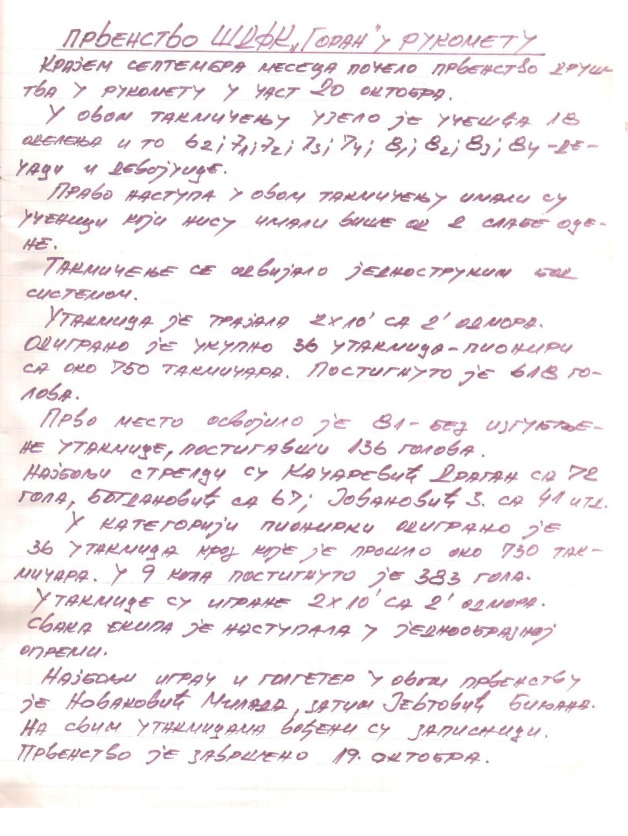 ПРВЕНСТВО ШДФК „ГОРАН" У РУКОМЕТУ
КРАЈЕМ СЕПТЕМБРА МЕСЕЦА ПОЧЕЛО ПРВЕНСТВО ДРУШ-
ТВА У РУКОМЕТУ У ЧАСТ 20 ОКТОБРА.
У ОВОМ ТАКМИЧЕЊУ УЗЕЛО ЈЕ УЧЕШЋА 18
ОДЕЛЕЊА И ТО 62; 71; 72; 73; 74; 81; 82; 83; 84 - ДЕ-
ЧАЦИ И ДЕВОЈЧИЦЕ.
ПРАВО НАСТУПА У ОВОМ ТАКМИЧЕЊУ ИМАЛИ СУ
УЧЕНИЦИ КОЈИ НИСУ ИМАЛИ ВИШЕ ОД 2 СЛАБЕ ОЦЕ-
НЕ.
ТАКМИЧЕЊЕ СЕ ОДВИЈАЛО ЈЕДНОСТРУКИМ БОД
СИСТЕМОМ.
УТАКМИЦА ЈЕ ТРАЈАЛА 2X10' СА 2' ОДМОРА.
ОДИГРАНО ЈЕ УКУПНО 36 УТАКМИЦА - ПИОНИРИ
СА ОКО 750 ТАКМИЧАРА. ПОСТИГНУТО ЈЕ 618 ГО-
ЛОВА.
ПРВО МЕСТО ОСВОЈИЛО ЈЕ 81 - БЕЗ ИЗГУБЉЕ-
НЕ УТАКМИЦЕ, ПОСТИГАВШИ 136 ГОЛОВА.
НАЈБОЉИ СТРЕЛЦИ СУ КАЧАРЕВИЋ ДРАГАН СА 72
ГОЛА, БОГДАНОВИЋ СА 67; ЈОВАНОВИЋ З. СА 41 ИТД.
У КАТЕГОРИЈИ ПИОНИРКИ ОДИГРАНО ЈЕ
36 УТАКМИЦА КРОЗ КОЈЕ ЈЕ ПРОШЛО ОКО 730 ТАК-
МИЧАРА. У 9 КОЛА ПОСТИГНУТО ЈЕ 383 ГОЛА.
УТАКМИЦЕ СУ ИГРАНЕ 2X10' СА 2' ОДМОРА.
СВАКА ЕКИПА ЈЕ НАСТУПАЛА У ЈЕДНООБРАЗНОЈ
ОПРЕМИ.
НАЈБОЉИ ИГРАЧ И ГОЛГЕТЕР У ОВОМ ПРВЕНСТВУ
ЈЕ НОВАКОВИЋ МИЛАДА, ЗАТИМ ЈЕВТОВИЋ БИЉАНА.
НА СВИМ УТАКМИЦАМА ВОЂЕНИ СУ ЗАПИСНИЦИ.
ПРВЕНСТВО ЈЕ ЗАВРШЕНО 19. ОКТОБРА.